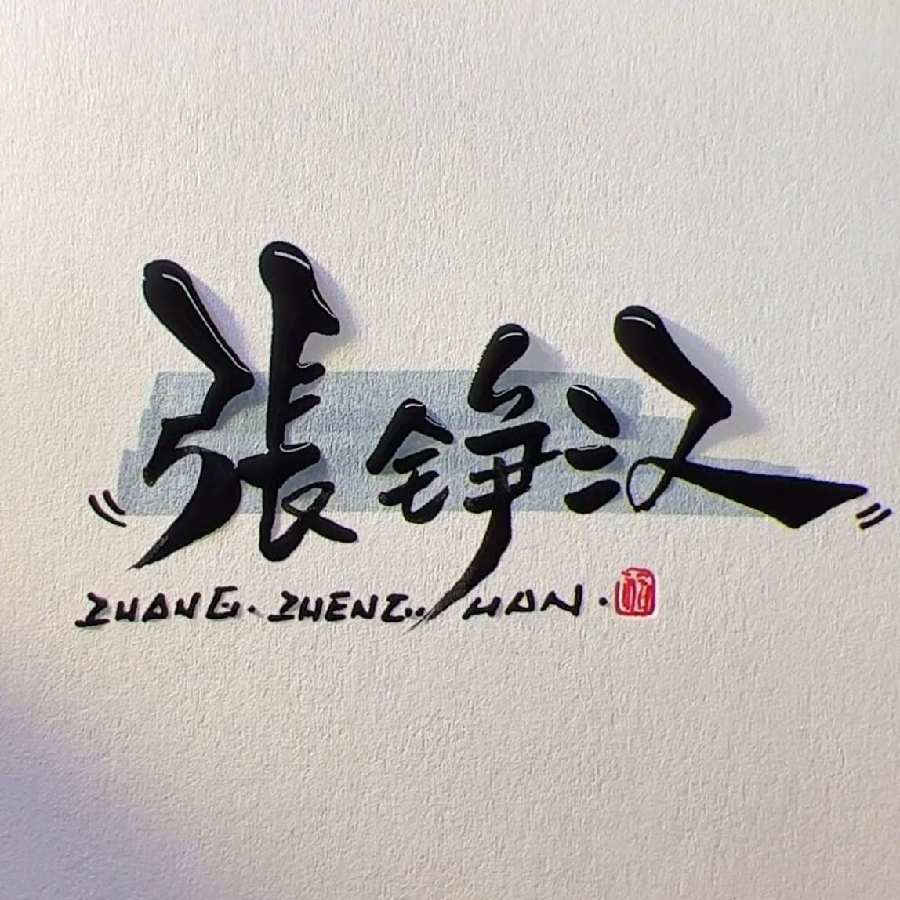 張铮汉
ZHANG. ZHENG. HAN.